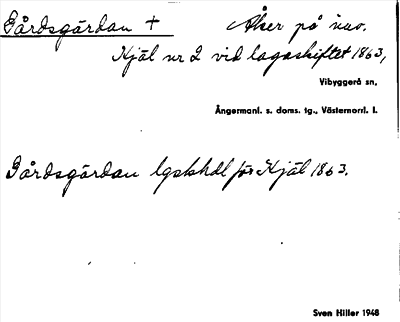 Gårdsgärdan + Åker på nuv.
Kjäl nr 2 vid lagaskiftet 1863,
Vibyggerå sn,
Ångermanl. s. doms. tg., Västernorrl. l.
Gårdsgärdan lgskhdl för Kjäl 1863.
Sven Hiller 1948